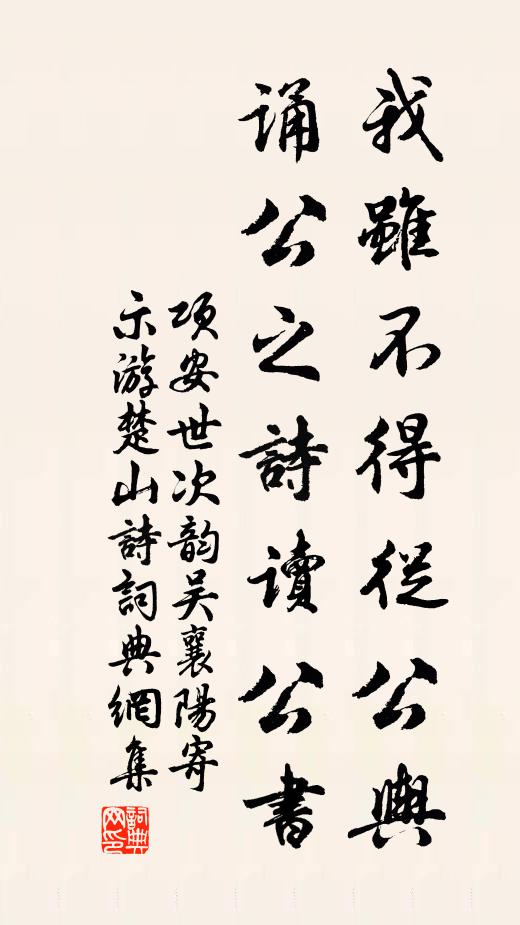 我雖不得從公輿
誦公之詩讀公書
項安世次韵吴襄陽寄
示游楚山詩詞典網集
詞典
网印